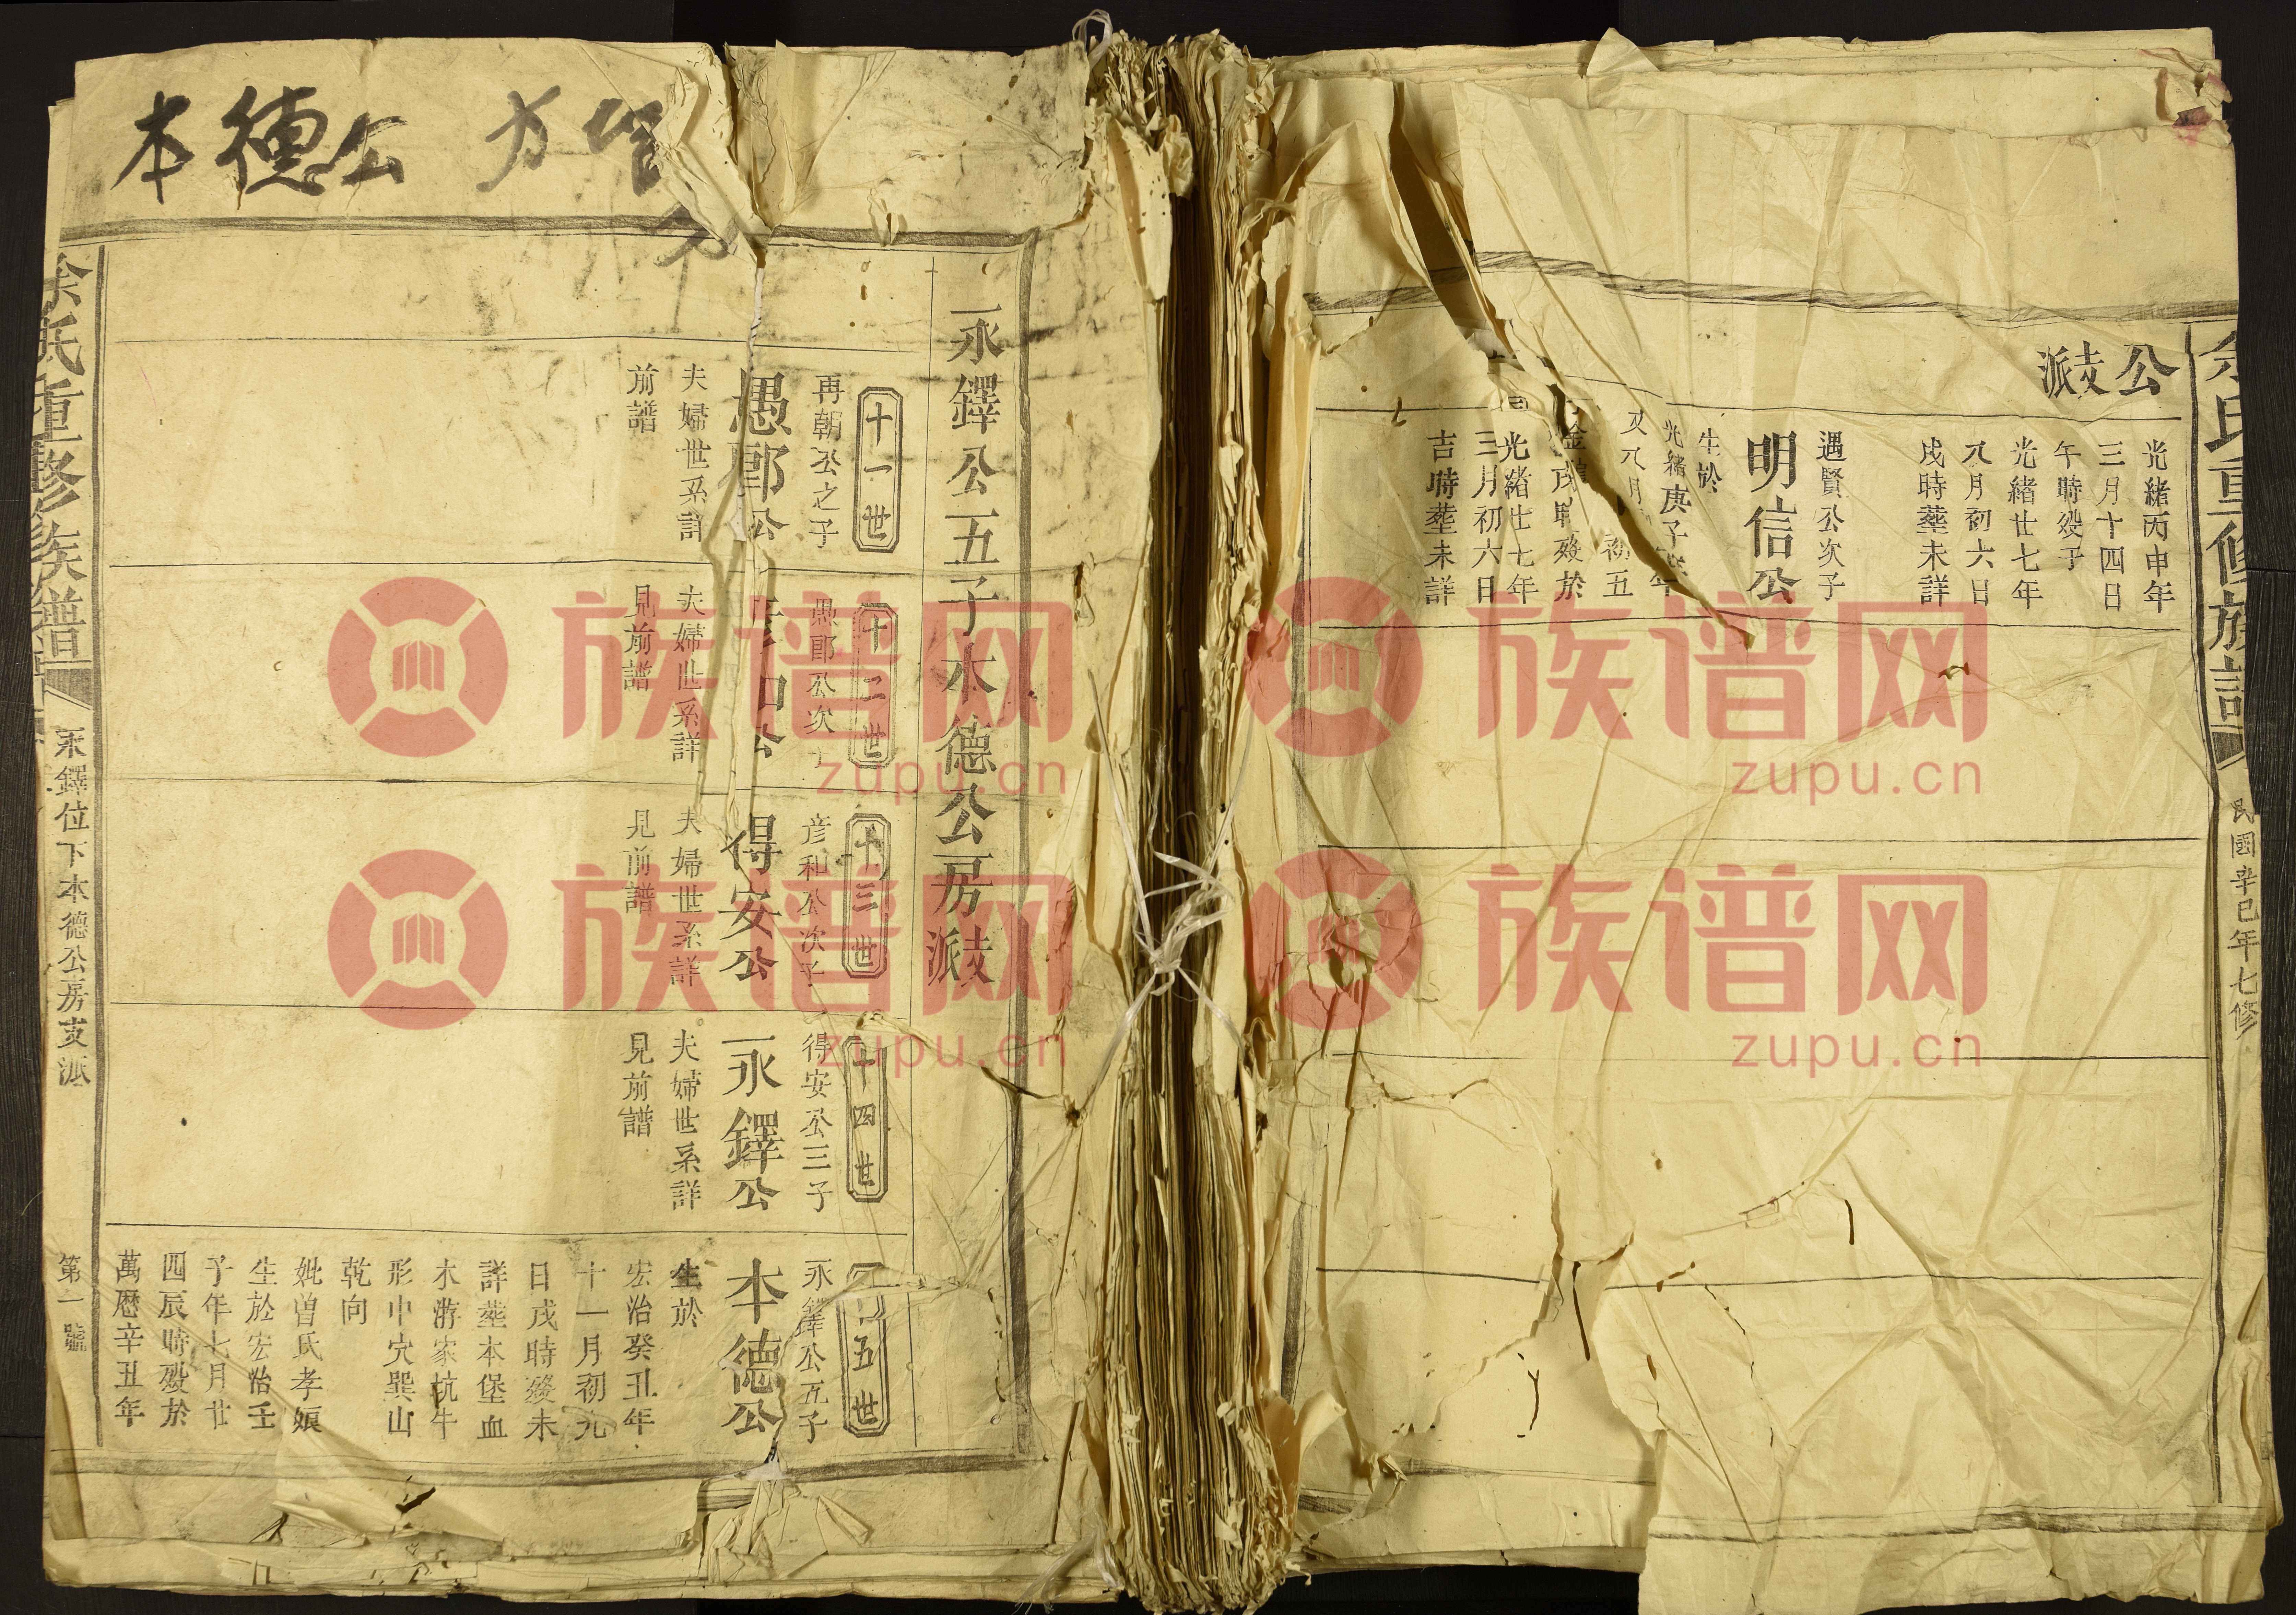 公支派
光緒丙申年
三月十四日
午時歿于
光緒廿七年
八月初六日
戌時塟未詳
遇賢公次子
明信公
生於
光緒庚子
初五
歿於
光緒廿七年
三月初六日
吉時塟未詳
余氏重修族譜
民國辛巳年七修
本德公
永鐸公五子本德公房支派
十一世
再朝公之子
愚郎公
夫婦世系詳
前譜
十二世
愚郎公次
公
夫婦世系詳
見前譜
十三世
彦和公次子
得安公
夫婦世系詳
見前譜
十四世
得安公三子
永鐸公
夫婦世系詳
見前譜
十五世
永鐸公五子
本德公
生於
宏治癸丑年
十一月初九
日戌時歿未
詳塟本堡血
木游家坑牛
形中穴巽山
乾向
妣曾氏孝娘
生於宏治壬
子年七月廿
四辰時歿於
萬曆辛丑年
余氏重修族譜
永鐸位下本德公房支派
第一號
族谱网
zupu.cn
族谱网
zupu.cn
族谱网
zupu.cn
族谱网
zupu.cn